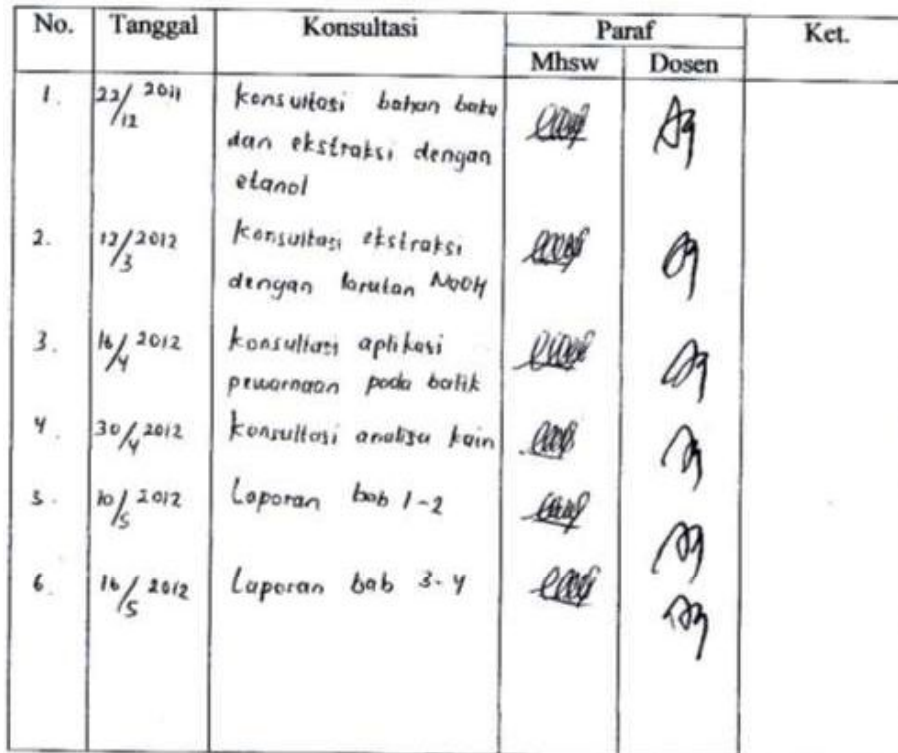 No. Tanggal Konsultasi Paraf Ket.
Mhsw Dosen
1. 22/12 2011 konsultasi bahan baku
dan ekstraksi dengan
etanol
2. 12/3 2012 konsultasi ekstraksi
dengan larutan NaOH
3. 16/4 2012 konsultasi aplikasi
pewarnaan pada batik
4. 30/4 2012 konsultasi analisa kain
5. 10/5 2012 Laporan bab 1-2
6. 16/5 2012 Laporan bab 3-4